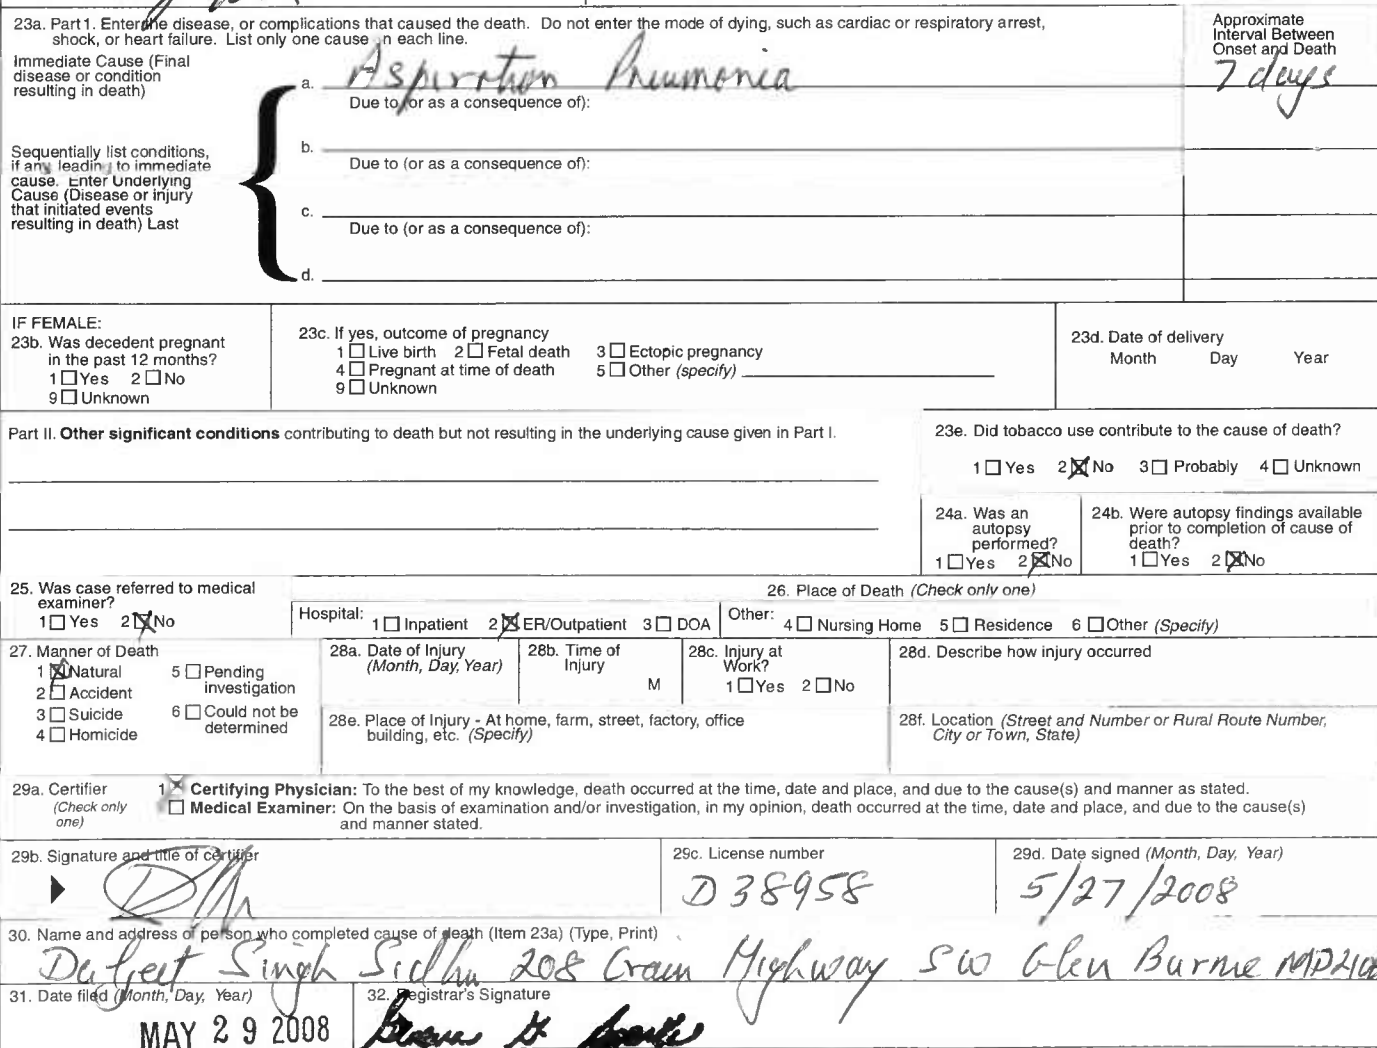 23a. Part 1. Enter the disease, or complications that caused the death. Do not enter the mode of dying, such as cardiac or respiratory arrest,
shock, or heart failure. List only one cause on each line.
Approximate
Interval Between
Onset and Death
Immediate Cause (Final
disease or condition
resulting in death)
a. Aspiration Pneumonia 7 days
Due to (or as a consequence of):
Sequentially list conditions,
if any leading to immediate
cause. Enter Underlying
Cause (Disease or injury
that initiated events
resulting in death) Last
b.
Due to (or as a consequence of):
c.
Due to (or as a consequence of):
d.
IF FEMALE:
23b. Was decedent pregnant
in the past 12 months?
1 ☐ Yes 2 ☐ No
9 ☐ Unknown
23c. If yes, outcome of pregnancy
1 ☐ Live birth 2 ☐ Fetal death 3 ☐ Ectopic pregnancy
4 ☐ Pregnant at time of death 5 ☐ Other (specify)
9 ☐ Unknown
23d. Date of delivery
Month Day Year
Part II. Other significant conditions contributing to death but not resulting in the underlying cause given in Part I.
23e. Did tobacco use contribute to the cause of death?
1 ☐ Yes 2 ☒ No 3 ☐ Probably 4 ☐ Unknown
24a. Was an
autopsy
performed?
1 ☐ Yes 2 ☒ No
24b. Were autopsy findings available
prior to completion of cause of
death?
1 ☐ Yes 2 ☒ No
25. Was case referred to medical
examiner?
1 ☐ Yes 2 ☒ No
26. Place of Death (Check only one)
Hospital: 1 ☐ Inpatient 2 ☒ ER/Outpatient 3 ☐ DOA Other: 4 ☐ Nursing Home 5 ☐ Residence 6 ☐ Other (Specify)
27. Manner of Death
1 ☒ Natural 5 ☐ Pending
investigation
2 ☐ Accident
3 ☐ Suicide 6 ☐ Could not be
determined
4 ☐ Homicide
28a. Date of Injury
(Month, Day, Year)
28b. Time of
Injury
M
28c. Injury at
Work?
1 ☐ Yes 2 ☐ No
28d. Describe how injury occurred
28e. Place of Injury - At home, farm, street, factory, office
building, etc. (Specify)
28f. Location (Street and Number or Rural Route Number,
City or Town, State)
29a. Certifier
(Check only
one)
1 ☒ Certifying Physician: To the best of my knowledge, death occurred at the time, date and place, and due to the cause(s) and manner as stated.
☐ Medical Examiner: On the basis of examination and/or investigation, in my opinion, death occurred at the time, date and place, and due to the cause(s)
and manner stated.
29b. Signature and title of certifier
29c. License number
D 38958
29d. Date signed (Month, Day, Year)
5/27/2008
30. Name and address of person who completed cause of death (Item 23a) (Type, Print)
Daljeet Singh Sidhu 208 Crain Highway SW Glen Burnie MD
31. Date filed (Month, Day, Year)
MAY 29 2008
32. Registrar's Signature